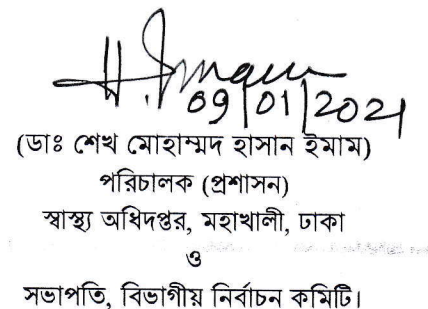 H. Imam
09/01/2021
(ডাঃ শেখ মোহাম্মদ হাসান ইমাম)
পরিচালক (প্রশাসন)
স্বাস্থ্য অধিদপ্তর, মহাখালী, ঢাকা
ও
সভাপতি, বিভাগীয় নির্বাচন কমিটি।